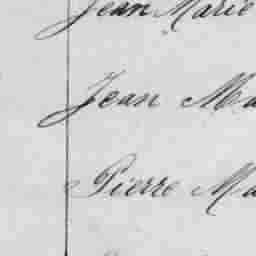 Jean Marie
Jean Ma
Pierre Ma